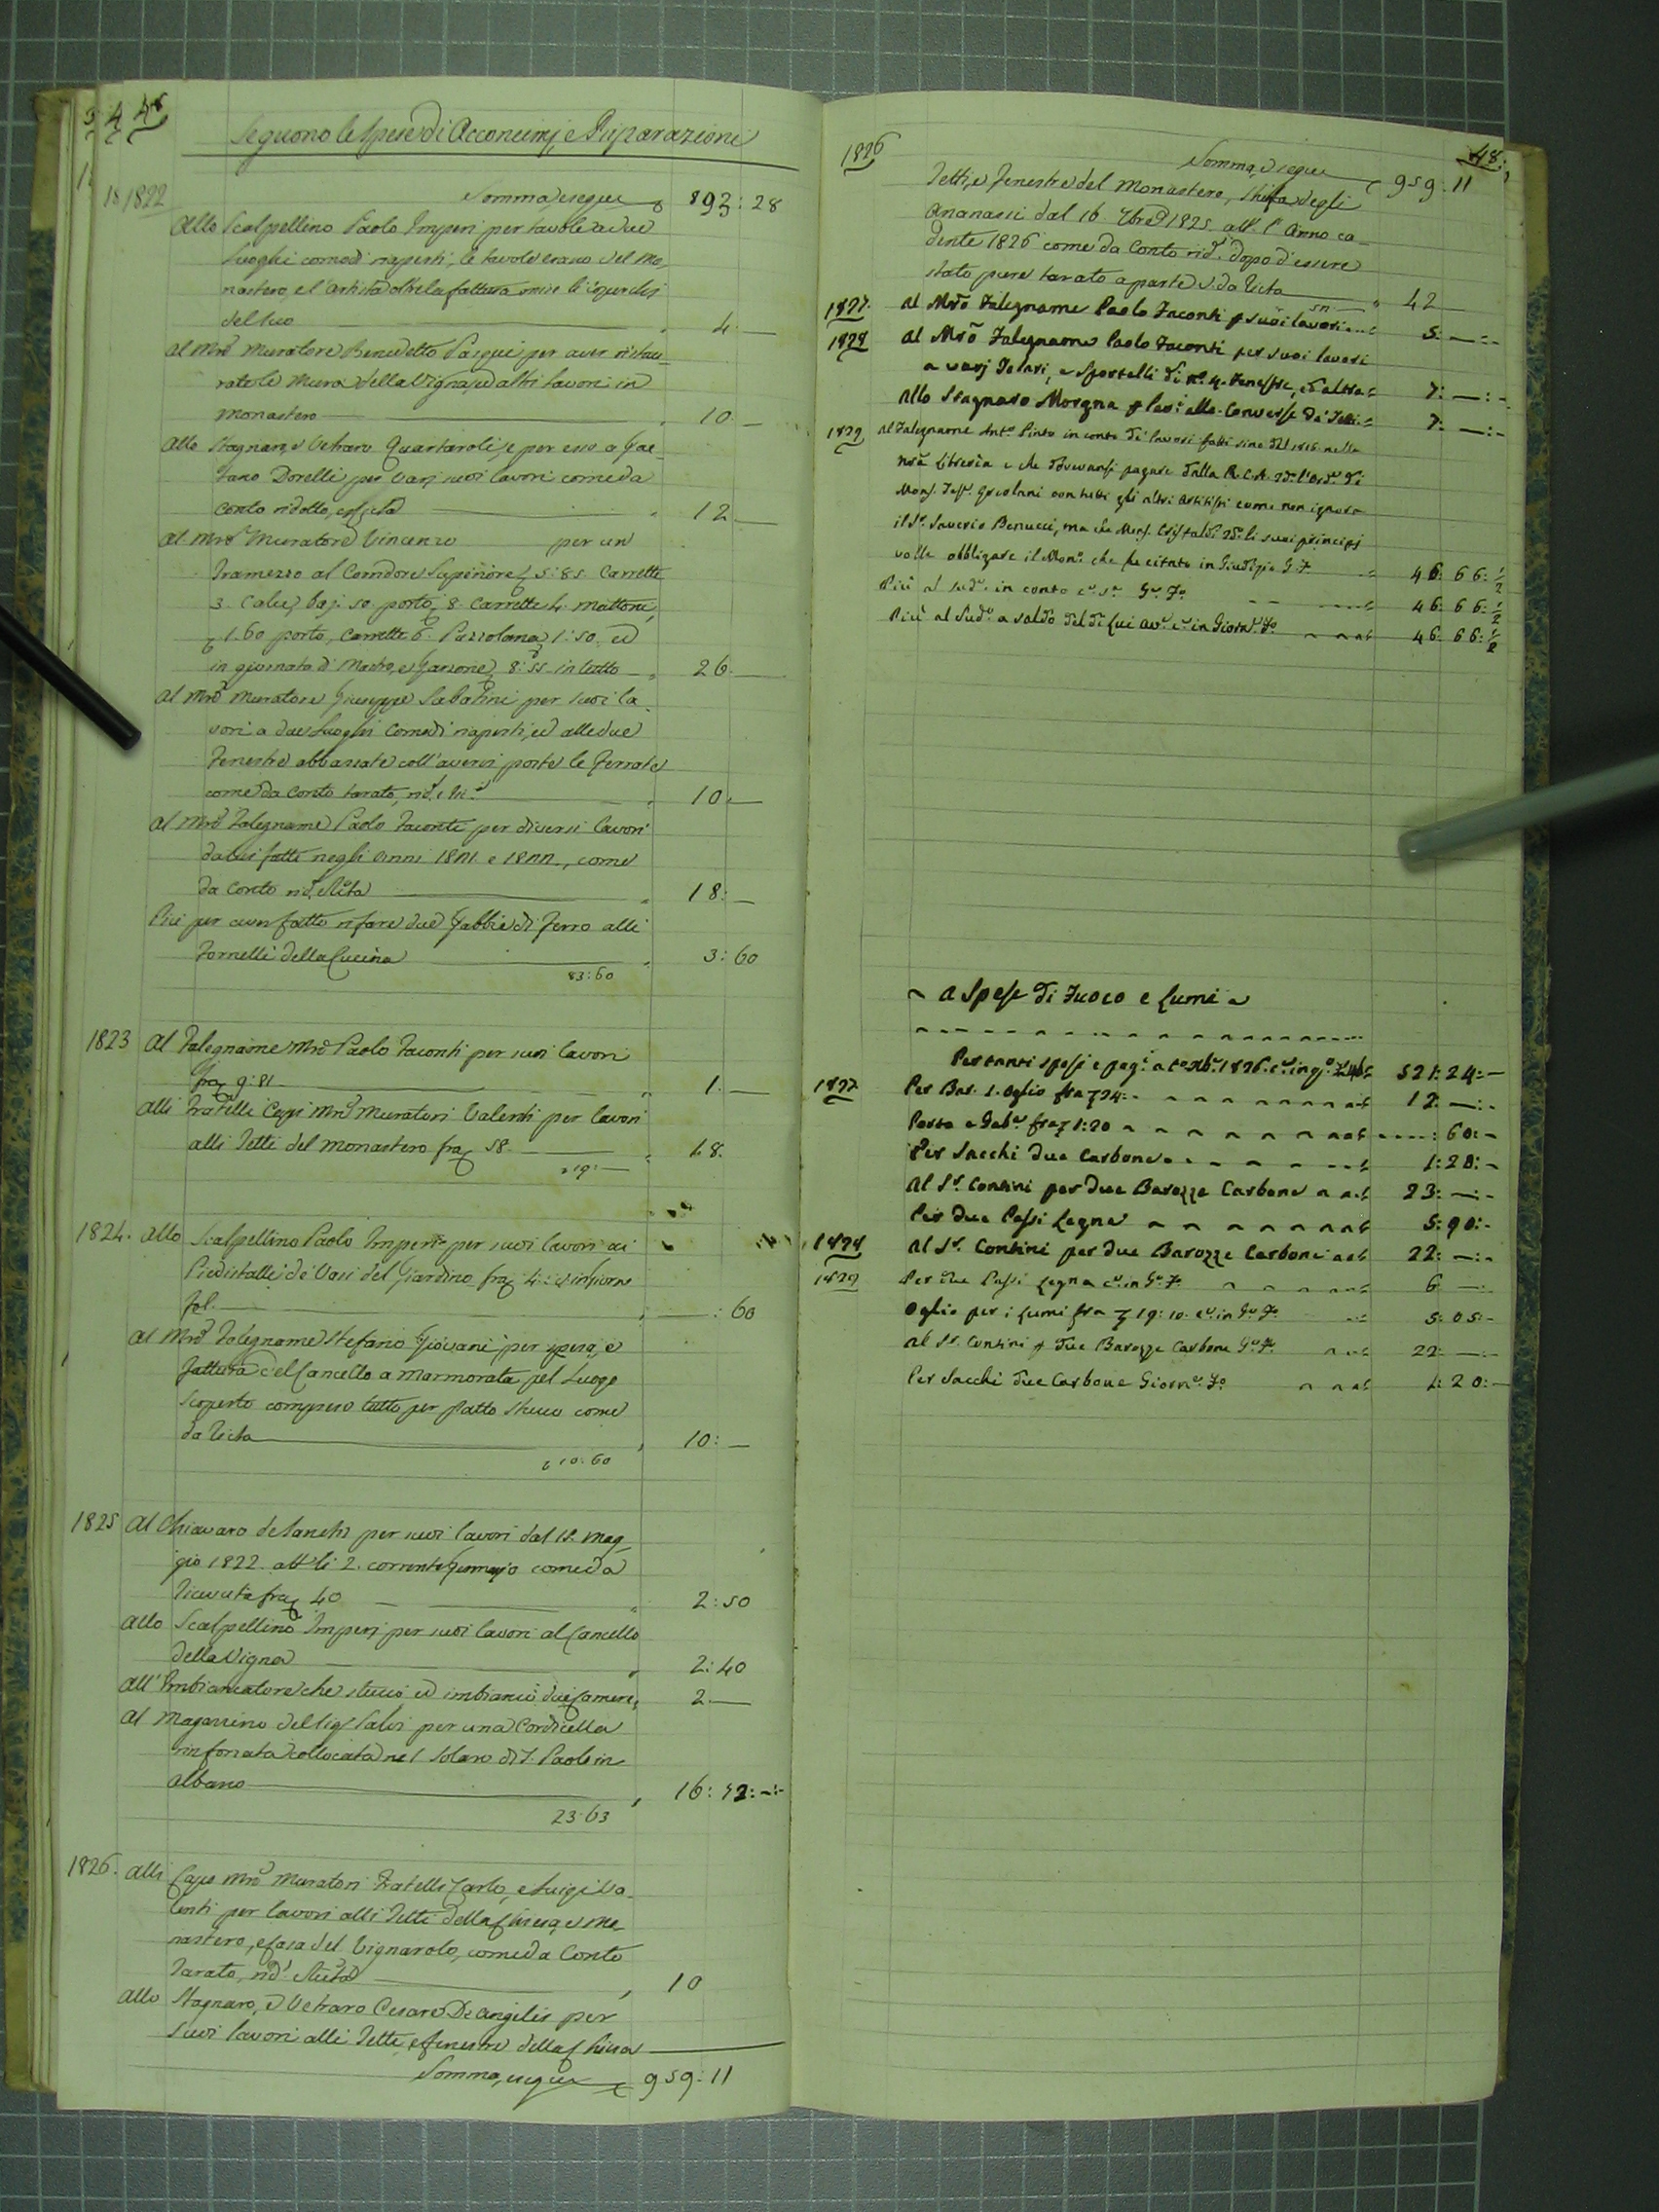 Seguono le Spese di Acconcimi, e Riparazioni
1822
Somma, e segue 893:28
Allo Scalpellino Paolo Imperi per tavole a due
Luoghi comodi riaperti, le tavole erano del Mo-
nastero, e l'Artista oltre la fattura mise li
del suo 4:—
Al Mrõ Muratore Benedetto per aver restau-
rate le Mura della Vigna, ed altri lavori in
Monastero 10:—
Allo Stagnaro, e Vetraro Quartaroli, e per esso a Gae-
tano Dorelli per varj suoi lavori come da
Conto ridotto, 12:—
Al Mrõ Muratore Vincenzo per un
Tramezzo al Corridore Superiore, 5:85 Carrette
3. Calce, baj. 50 porto, 8. Carrette 4. Mattoni,
1.60 porto, Carrette 6. Pozzolana, 1:50, ed
in giornate di Mastro, e Garzone 8:55 in tutto 26:—
Al Mrõ Muratore Giuseppe Sabatini per suoi la-
vori a due Luoghi Comodi riaperti, ed alle due
Fenestre abbassate coll'avervi poste le Ferrate
come da Conto tarato, rid.
10:—
Al Mrõ Falegname Paolo Taconti per diversi lavori
da lui fatti negli Anni 1821. e 1822., come
da Conto rid. 18:—
Più per aver fatto rifare due Gabbie di ferro alli
Fornelli della Cucina 3:60
83:60
1823 Al Falegname Mrõ Paolo Taconti per suoi lavori
fra 9:81 1:—
Alli Fratelli Capi Mrĩ Muratori Valenti per lavori
alli Tetti del Monastero fra 58. 18.
19:—
1824. Allo Scalpellino Paolo Imperi per suoi lavori ai
Piedistalli de' Vasi del Giardino
fol. —:60
Al Mrõ Falegname Stefano Giovani per spesa, e
fattura del Cancello a Marmorata pel Luogo
scoperto compreso tutto per patto come
da Ricta 10:—
10:60
1825 Al Chiavaro per suoi lavori dal 18. Mag-
gio 1822. alli 2. corrente Gennajo come da
Ricevuta fra 40 2:50
Allo Scalpellino Imperj per suoi lavori al Cancello
della Vigna 2:40
All'Imbiancatore che stuccò, ed imbiancò due Camere, 2.—
Al Magazzino del Sig. Salvi per una Cordicella
rinforzata collocata nel Solaro di S. Paolo in
Albano 16:
23:63
1826. Alli Capi Mrĩ Muratori Fratelli Carlo, e Luigi Va-
lenti per lavori alli Tetti della Chiesa, e Mo-
nastero, e Casa del Vignarolo, come da Conto
tarato, rid. 10
Allo Stagnaro, e Vetraro Cesare De Angelis per
suoi lavori alli Tetti, e fenestre della Chiesa
Somma, e segue 959:11
48.
1826
Somma, e segue 959:11
Tetti, e fenestre del Monastero, Stufa degli
Ananassi dal 16. 7bre 1825. all' Anno ca-
dente 1826 come da Conto rid. dopo d'essere
stato pure tarato a parte v. da Ricta 42
1827. Al Mrõ Falegname Paolo Taconti p suoi lavori 5:—:-
1828 Al Mrõ Falegname Paolo Taconti per suoi lavori
a varj Telari, e Sportelli di nº. 4. Fenestre, ed altro 7:—:-
Allo Stagnaro Morgna alle Converse de' Tetti 7:—:-
1829 Al Falegname Antº. Pinto in conto de' lavori fatti sino dal 1816 nella
nrã Libreria e che dovevansi pagare dalla R.C.A.
con tutti gli altri Artisti come non ignora
il Sr. Saverio Benucci, ma che Monsʳ. Cristaldi li suoi principj
volle obbligare il Monº. che fu citato in Giudizio 46:66:½
Più al sudº. in conto 46:66:½
Più al sudº. a saldo 46:66:½
A Spese di Fuoco e Lumi
Per tanti spesi e pag. 521:24:—
1827 Per Bar. 1. Oglio fra 24:- 12:—:-
Porto e Gab. fra 1:20 60:-
Per Sacchi due Carbone 1:20:-
Al Sr. Contini per due Barozze Carbone 23:—:-
Per due Passi Legna 5:90:-
1828 Al Sr. Contini per due Barozze Carbone 22:—:-
1829 Per due Passi Legna 6:—:-
Oglio per i Lumi fra 19:10. 5:05:-
Al Sr. Contini p due Barozze Carbone 22:—:-
Per Sacchi due Carbone 1:20:—